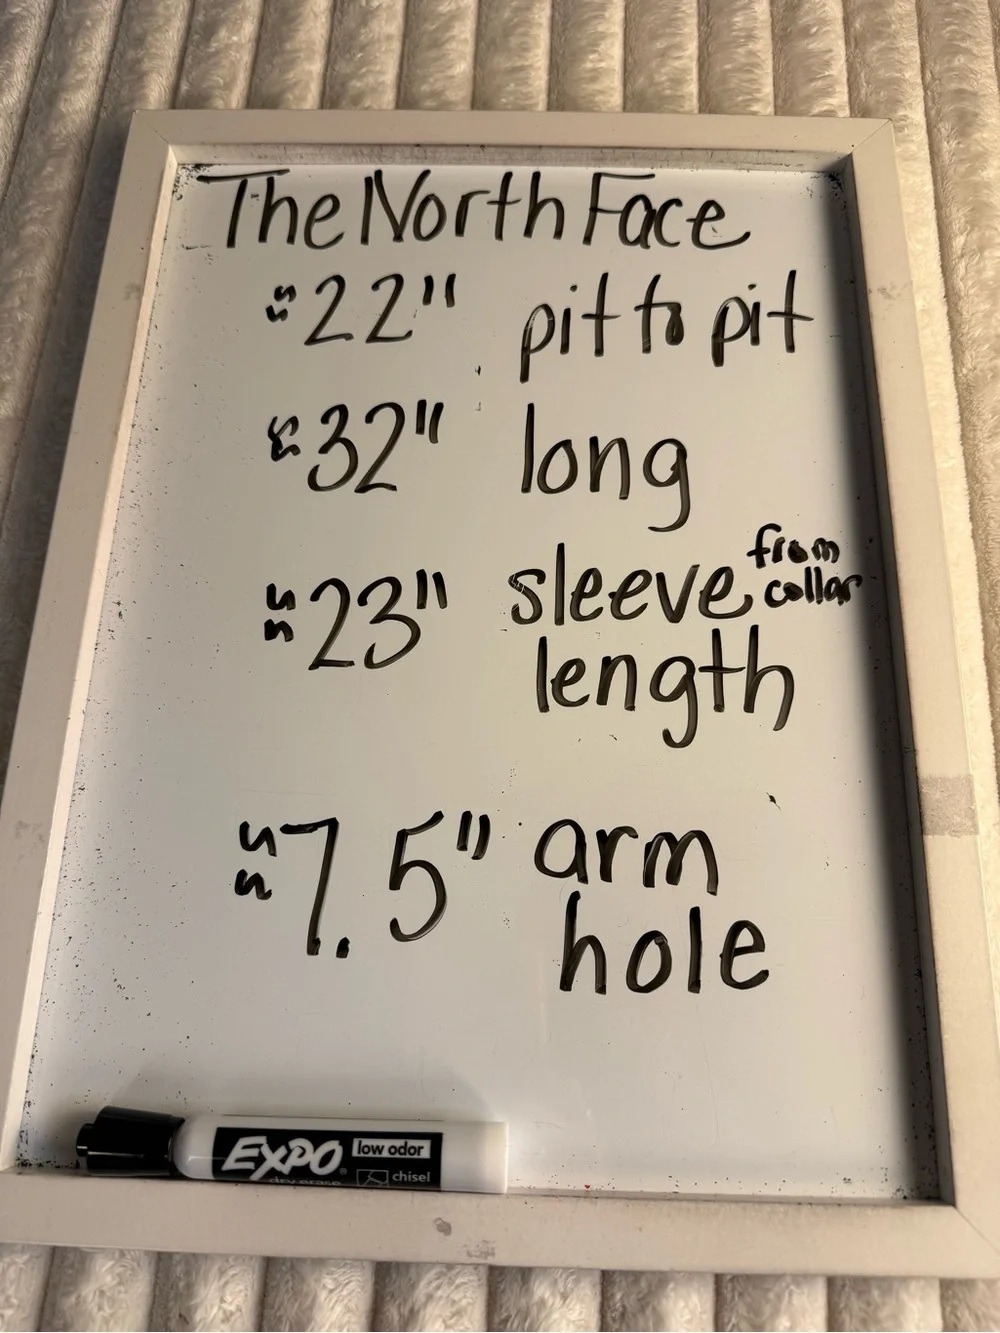 The North Face
≈22" pit to pit
≈32" long
≈23" sleeve from collar
length
≈7.5" arm
hole
EXPO® low odor
dry erase chisel